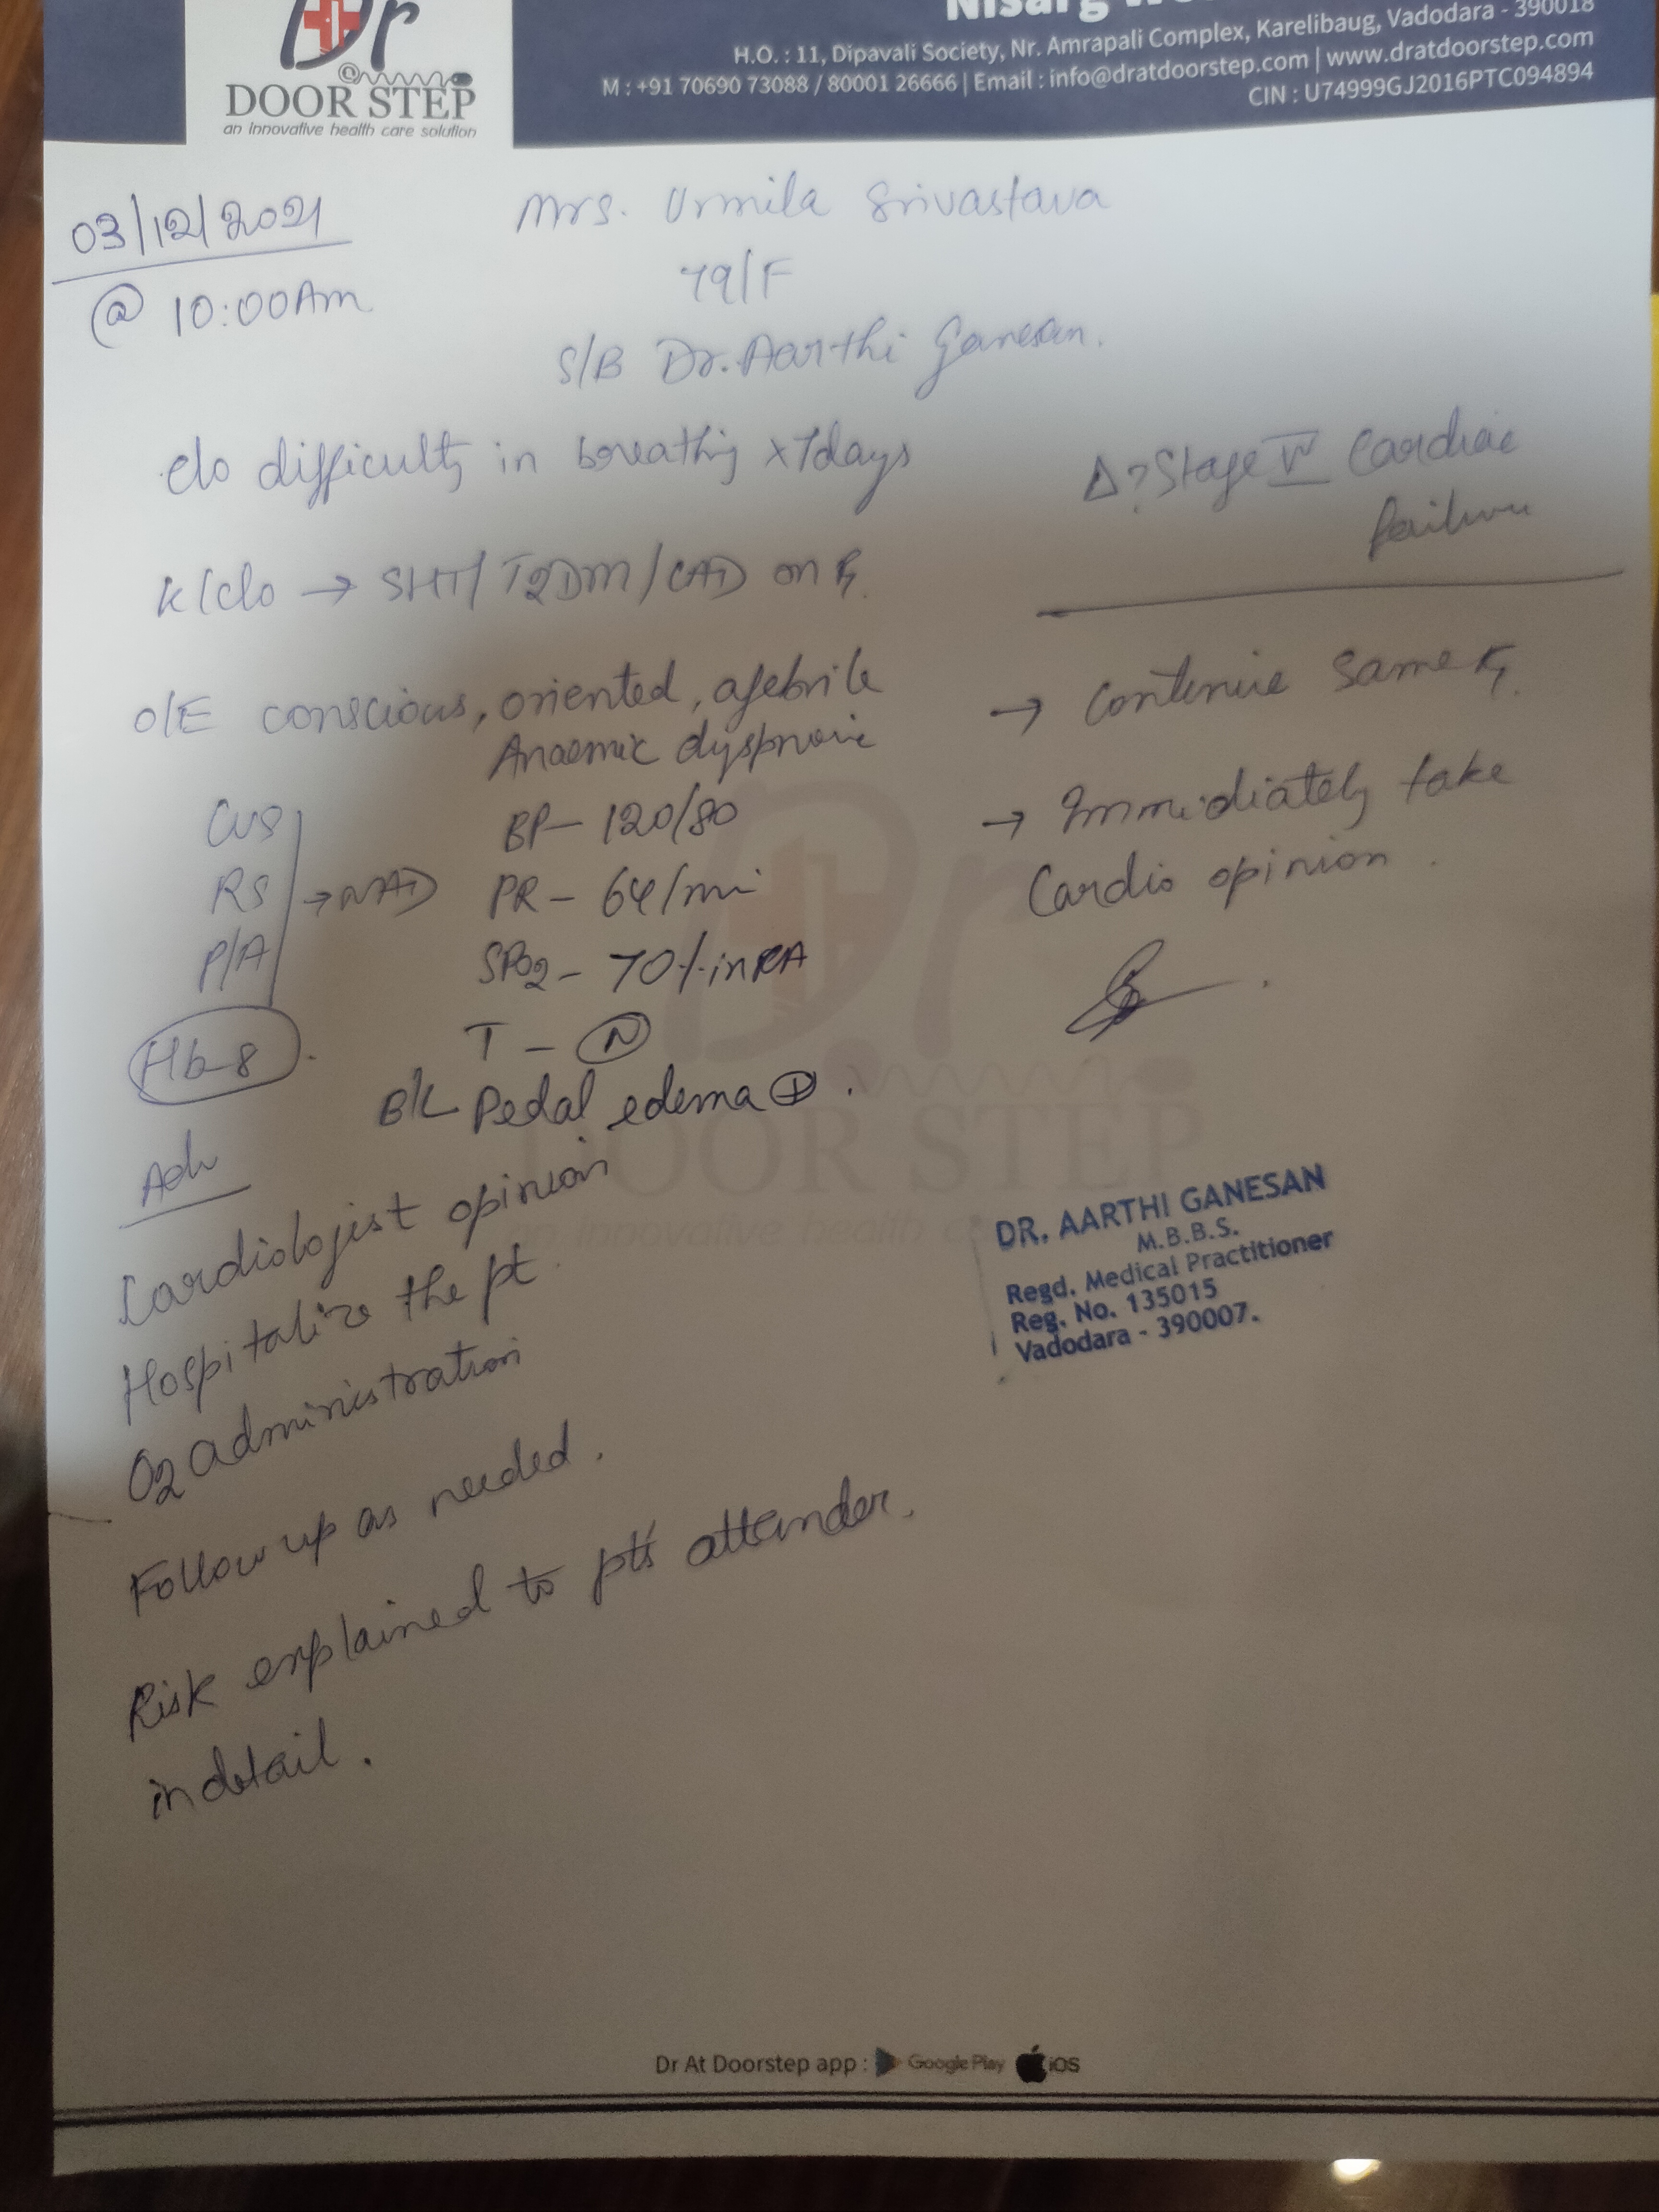 Dr
DOOR STEP
an innovative health care solution
H.O. : 11, Dipavali Society, Nr. Amrapali Complex, Karelibaug, Vadodara - 390018
M : +91 70690 73088 / 80001 26666 | Email : info@dratdoorstep.com | www.dratdoorstep.com
CIN : U74999GJ2016PTC094894
03/12/2021
@ 10:00Am
Mrs. Urmila Srivastava
79/F
S/B Dr. Aarthi Ganesan.
c/o difficulty in breathing x 7days
K/c/o → SHT/T2DM/CAD on Rx.
O/E conscious, oriented, afebrile
Anaemic dyspnoic
CVS
RS → NAD
P/A
BP - 120/80
PR - 64/min
SPO2 - 70% in RA
T - N
Hb-8
B/L Pedal edema +.
Adv
Cardiologist opinion
Hospitalize the pt.
O2 administration
Follow up as needed.
Risk explained to pt's attender.
in detail.
Δ? Stage IV Cardiac
failure
→ Continue same Rx.
→ Immediately take
Cardio opinion.
DR. AARTHI GANESAN
M.B.B.S.
Regd. Medical Practitioner
Reg. No. 135015
Vadodara - 390007.
Dr At Doorstep app : Google Play iOS